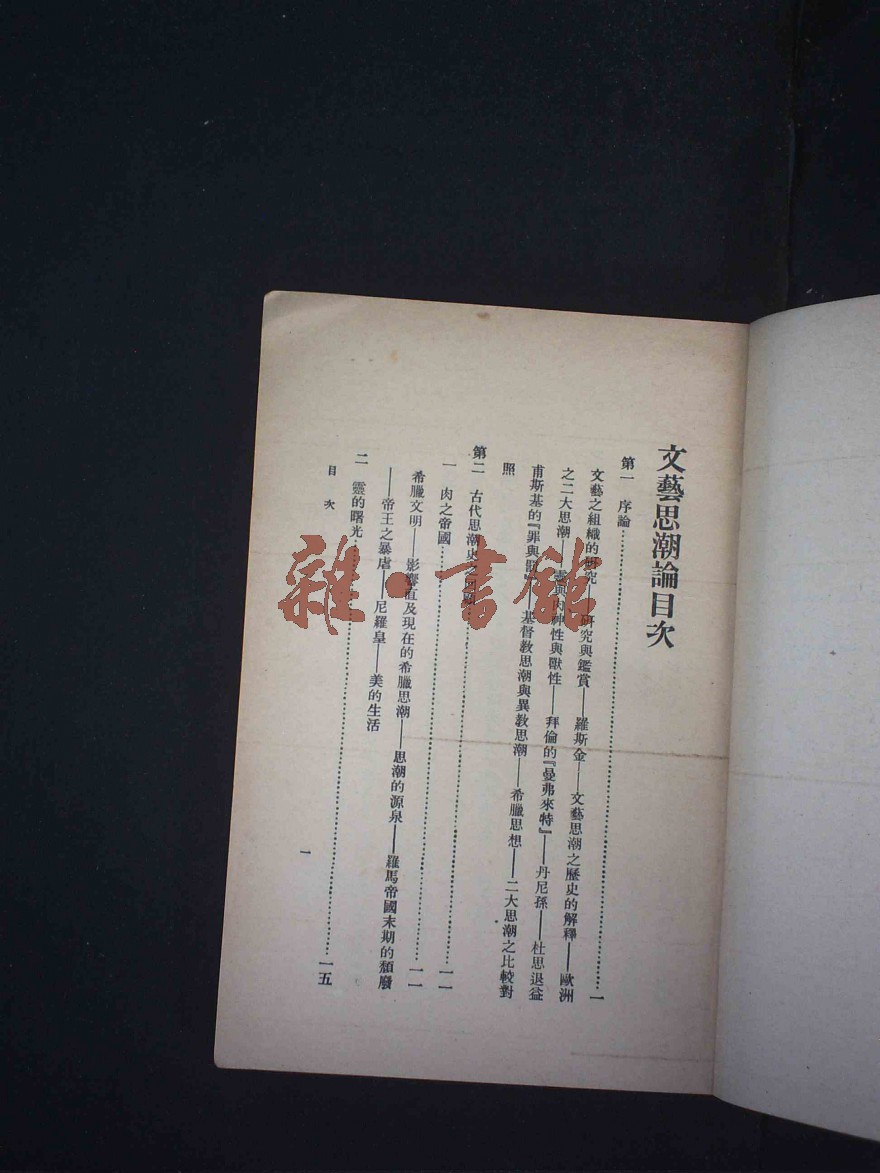 文藝思潮論目次
第一　序論……一
文藝之組織的研究——研究與鑑賞——羅斯金——文藝思潮之歷史的解釋——歐洲
之二大思潮——靈與肉神性與獸性——拜倫的『曼弗來特』——丹尼孫——杜思退益
甫斯基的『罪與罰』——基督教思潮與異教思潮——希臘思想——二大思潮之比較對
照
第二　古代思潮史之……一一
一　肉之帝國……一一
希臘文明——影響直及現在的希臘思潮——思潮的源泉——羅馬帝國末期的頹廢
——帝王之暴虐——尼羅皇——美的生活
二　靈的曙光……一五
目次
一
雜·書館